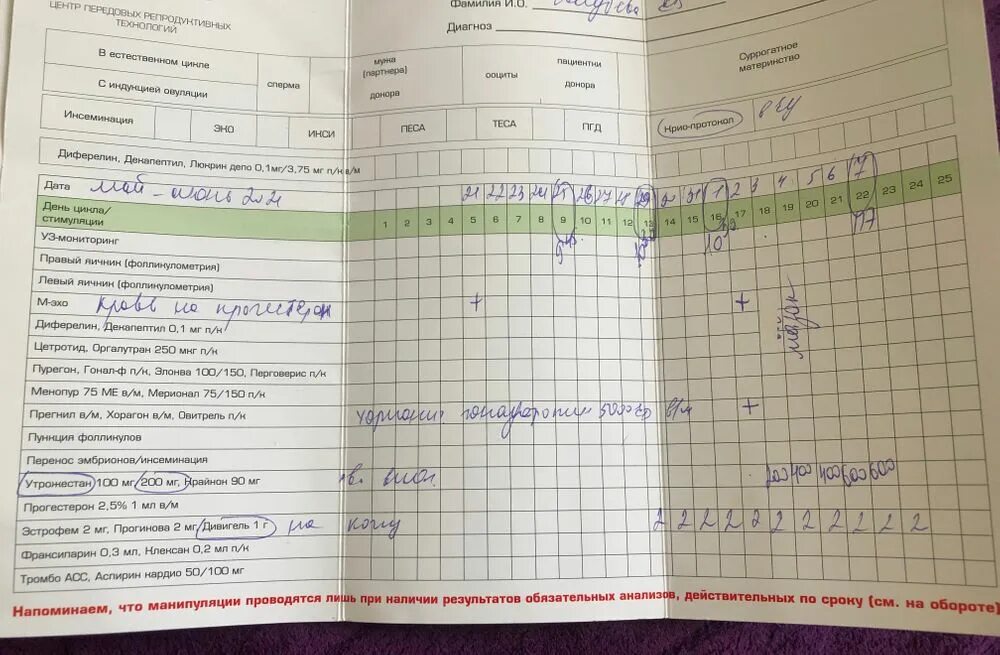 ЦЕНТР ПЕРЕДОВЫХ РЕПРОДУКТИВНЫХ
ТЕХНОЛОГИЙ
Фамилия И.О.
Диагноз
В естественном цикле
С индукцией овуляции
сперма
мужа
(партнера)
донора
ооциты
пациентки
донора
Суррогатное
материнство
Инсеминация
ЭКО
ИКСИ
ПЕСА
ТЕСА
ПГД
Крио-протокол
Диферелин, Декапептил, Люкрин депо 0,1мг/3,75 мг п/к в/м
Дата май - июнь 2021 21 22 23 24 25 26 27 28 29 31 1 2 3 4 5 6 7
День цикла/
стимуляции
1 2 3 4 5 6 7 8 9 10 11 12 13 14 15 16 17 18 19 20 21 22 23 24 25
УЗ-мониторинг
Правый яичник (фолликулометрия)
Левый яичник (фолликулометрия)
М-эхо кровь на прогестерон + +
Диферелин, Декапептил 0,1 мг п/к
Цетротид, Оргалутран 250 мкг п/к
Пурегон, Гонал-ф п/к, Элонва 100/150, Перговерис п/к
Менопур 75 МЕ в/м, Мерионал 75/150 п/к
Прегнил в/м, Хорагон в/м, Овитрель п/к хорионич. гонадотропин 5000 ЕД в/м +
Пункция фолликулов
Перенос эмбрионов/инсеминация
Утрожестан 100 мг, 200 мг, Крайнон 90 мг 400 400 600 600
Прогестерон 2,5% 1 мл в/м
Эстрофем 2 мг, Прогинова 2 мг, Дивигель 1 г на кожу 2 2 2 2 2 2 2 2 2 2 2
Франсипарин 0,3 мл, Клексан 0,2 мл п/к
Тромбо АСС, Аспирин кардио 50/100 мг
Напоминаем, что манипуляции проводятся лишь при наличии результатов обязательных анализов, действительных по сроку (см. на обороте)